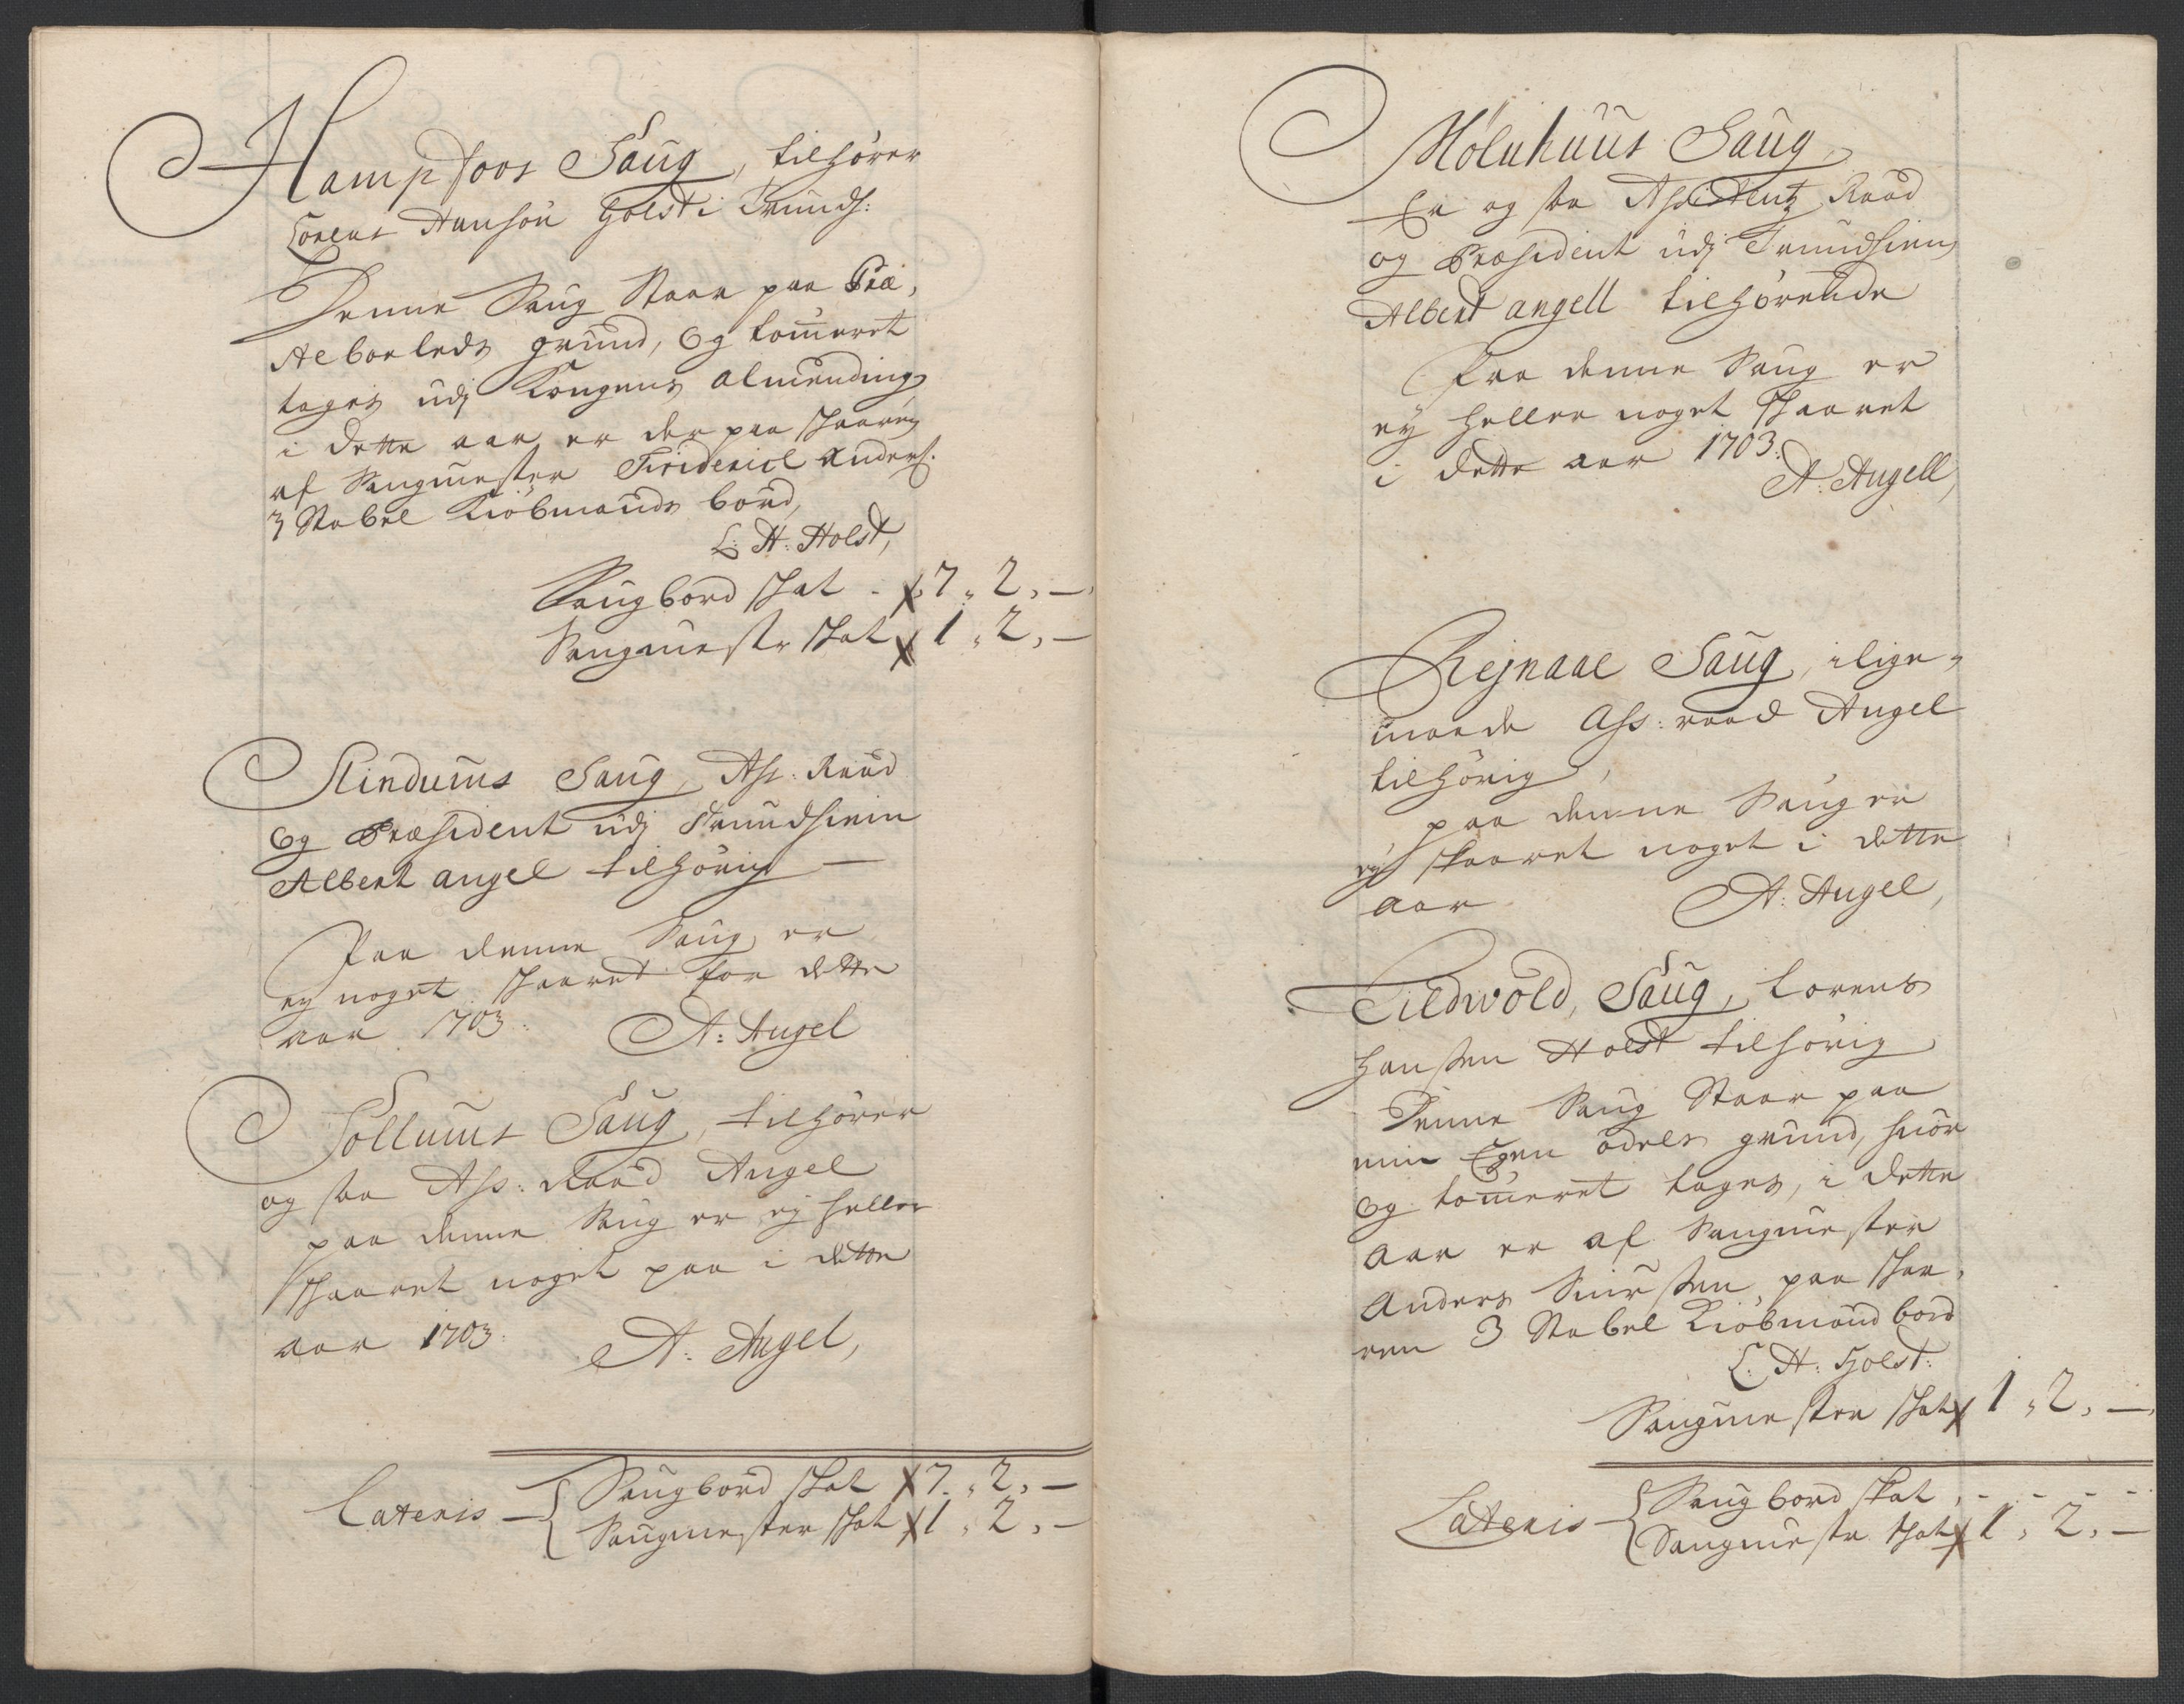 Hampfoos Saug, tilhører
Lorens Hansøn Holst i Trundh:
Denne Saug Staar paa Præ,
Aeboeleds grund, Og tom̄eret
tages udj Kongens Almending
i dette aar er der paa skaaren
af Saugmester Friderich Anders.
3 Stabel Kiøbmands bord,
L: H: Holst,
Saugbord skat - 7 „ 2 „ —
Saugmestr skat 1 „ 2 „ —
Saug, Ass: Raad
Og Præsident udj Trundhiem
Albert angel tilhørig —
Paa denne Saug er
ey noget skaaret for dette
aar 1703: A: Angel
Saug, tilhører
og saa Ass: Raad Angel
paa denne Saug er ej heller
skaaret noget paa i dette
aar 1703: A: Angel,
Lateris — Saugbord skat 7 „ 2 „ —
Saugmester skat 1 „ 2 „ —
Mølnhuus Saug,
Er og saa Raad
og Præsident udj Trundhiem
Albert angell tilhørende
Paa denne Saug er
ey heller noget skaaret
i dette aar 1703: A: Angell,
Rejnaae Saug, ilige,
maade Ass: raad Angel
tilhørig,
paa denne Saug er
ej skaaret noget i dette
aar A: Angel,
Saug, Lorens
Hanssen Holst tilhørig
Denne Saug Staar paa
min Egen odels grund, huor
Og tom̄eret tages, i dette
aar er af Saugmester
Anders paa skaa,
ren 3 Stabel Kiøbmand bord
L: H: Holst:
Saugmester skat 1 „ 2 „ —
Lateris — Saugbord skat „ - - - -
Saugmestr skat 1 „ 2 „ —